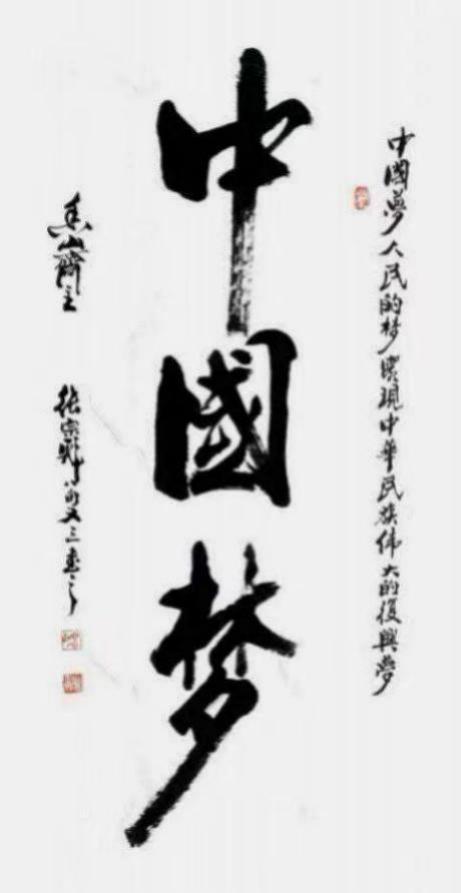 中國夢人民的梦實現中華民族伟大的復興夢
中國梦
香山齋主
張宗彪